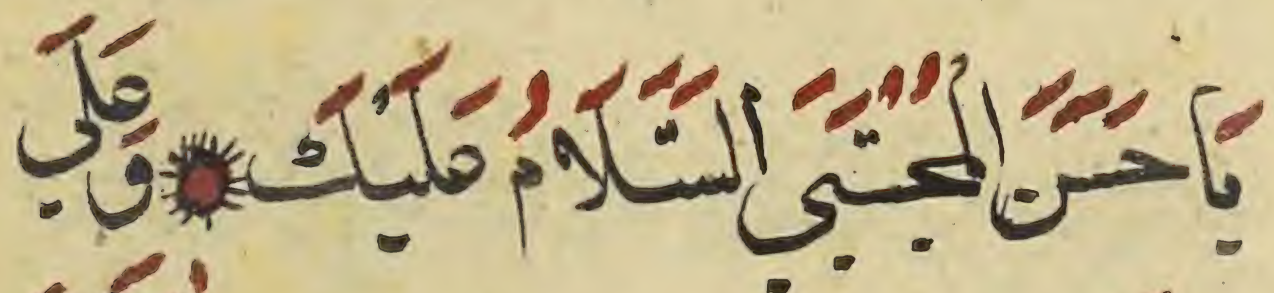 يَا حَسَنَ الْمُجْتَبَي السَّلَامُ عَلَيْكَ وَعَلَي